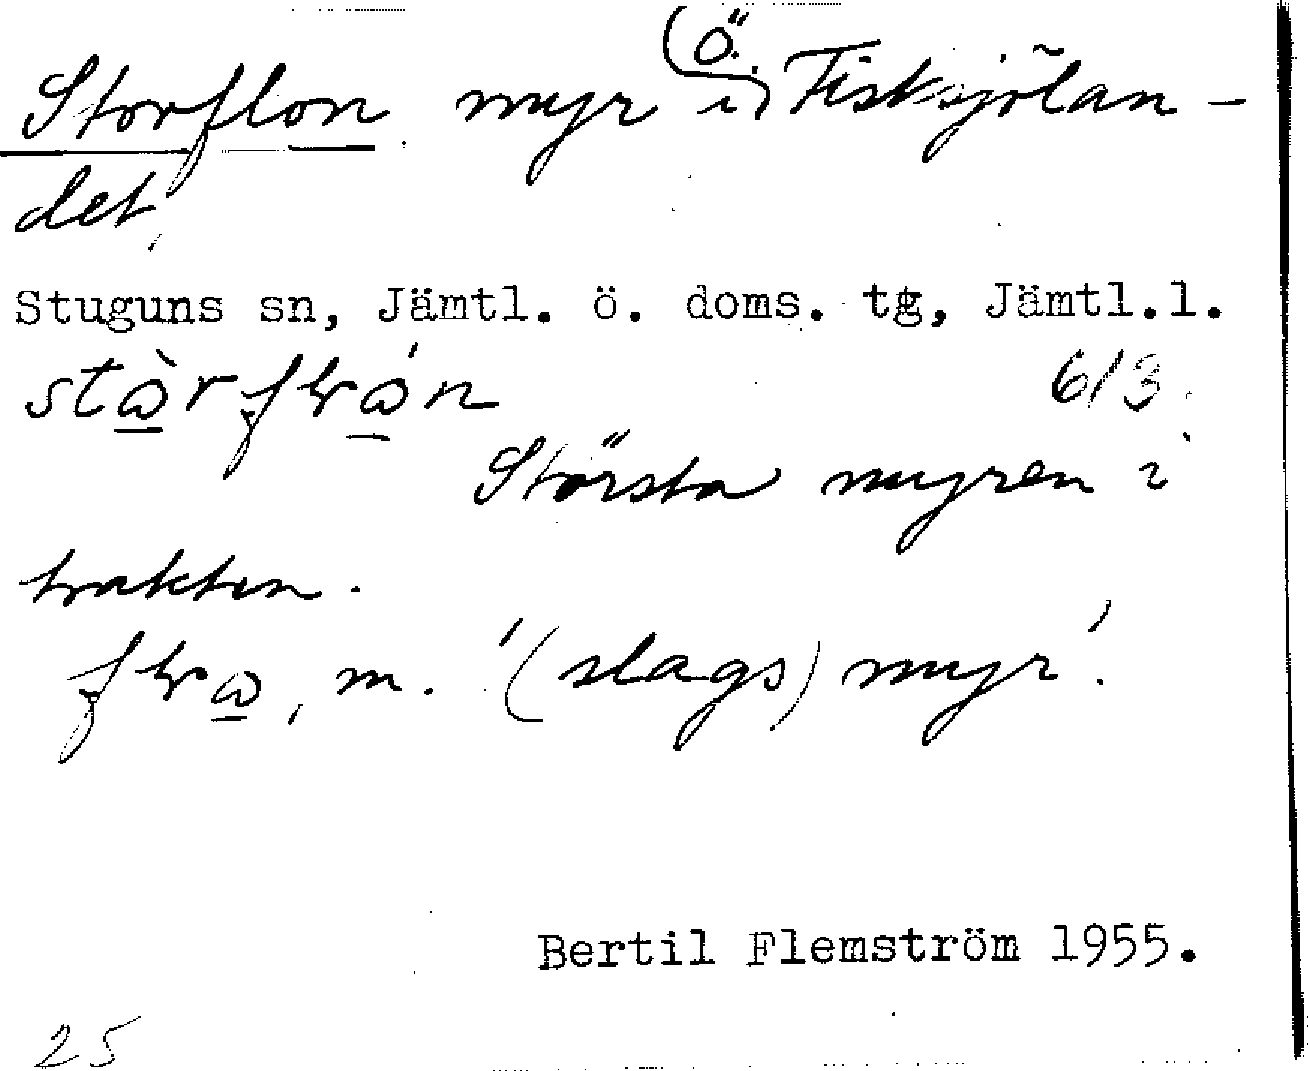 Storflon myr (ö.) i Fisksjölan-
det,
Stuguns sn, Jämtl. ö. doms. tg, Jämtl.l.
613
Största myren i
trakten.
m. '(slags) myr'.
Bertil Flemström 1955.
25